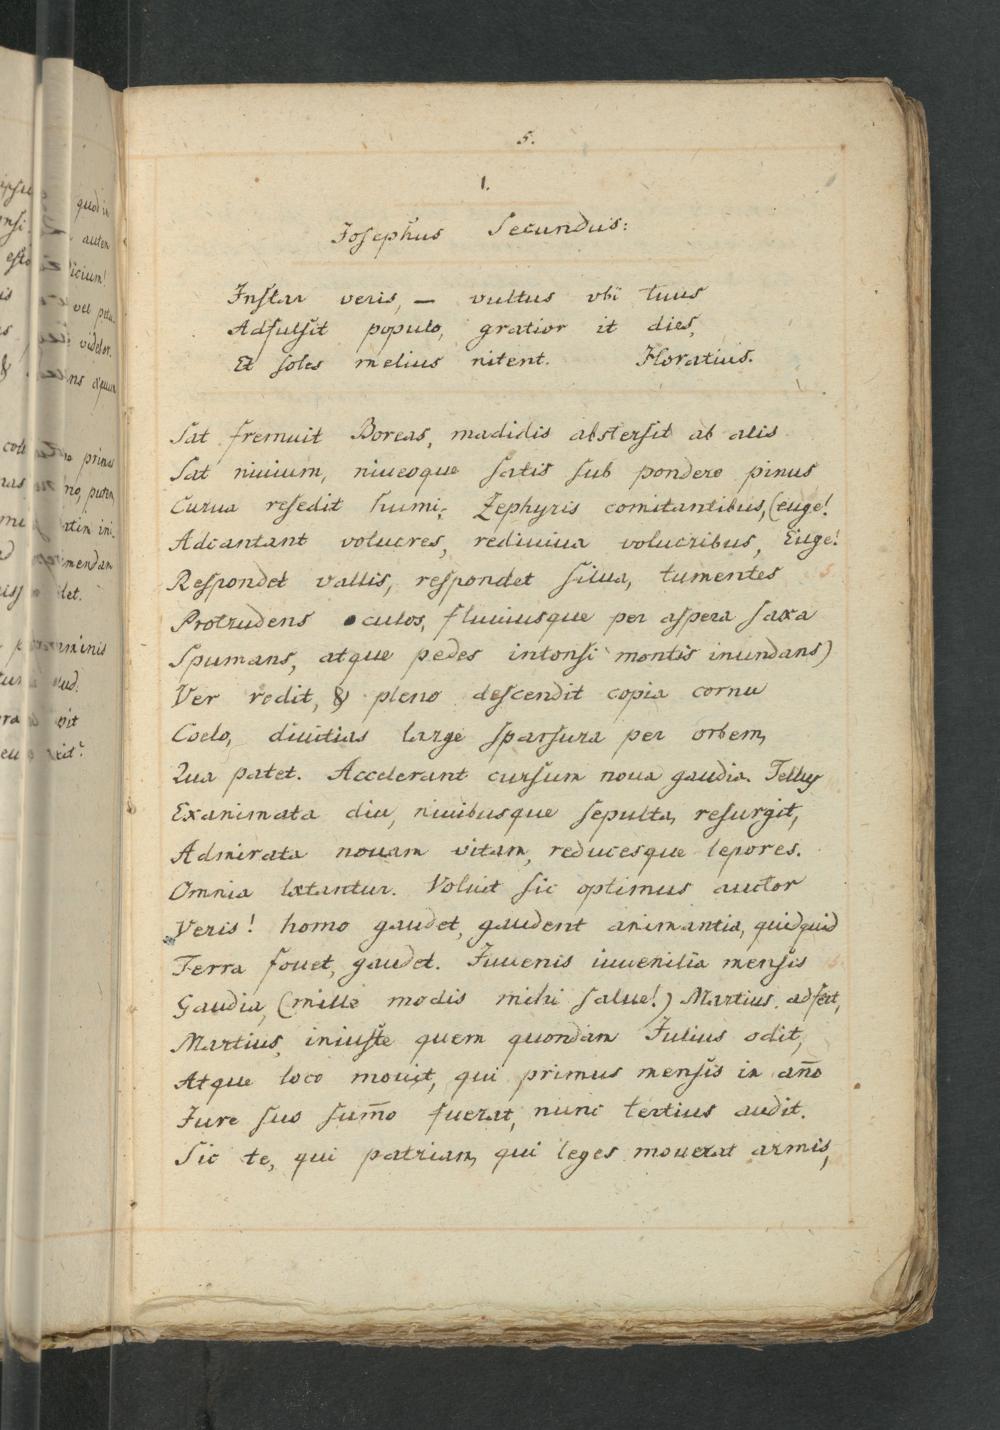 5.
1.
Josephus Secundus:
Instar veris, — vultus vbi tuus
Adfulsit populo, gratior it dies,
Et soles melius nitent. Horatius.
Sat fremuit Boreas, madidis abstersit ab alis
Sat niuium, niueoque satis sub pondere pinus
Curua resedit humi; Zephyris comitantibus, (euge!
Adcantant volucres, rediuiua volucribus, Euge!
Respondet vallis, respondet silua, tumentes
Protrudens oculos, fluuiusque per aspera saxa
Spumans, atque pedes intonsi montis inundans)
Ver redit, & pleno descendit copia cornu
Coelo, diuitias large sparsura per orbem,
Qua patet. Accelerant cursum noua gaudia. Tellus
Exanimata diu, niuibusque sepulta, resurgit,
Admirata nouam vitam, reducesque lepores.
Omnia lætantur. Voluit sic optimus auctor
Veris! homo gaudet, gaudent animantia, quidquid
Terra fouet, gaudet. Iuuenis iuuenilia mensis
Gaudia, (mille modis mihi salue!) Martius adfert,
Martius, iniuste quem quondam Julius odit,
Atque loco mouit, qui primus mensis in an̄o
Jure suo sum̄o fuerat, nunc tertius audit.
Sic te, qui patriam, qui leges mouerat armis,